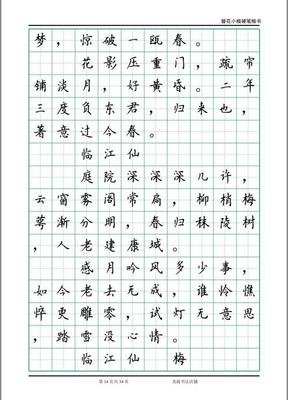 簪花小楷硬笔楷书
梦，惊破一瓯春。
花影压重门，疏帘
铺淡月，好黄昏。二年
三度负东君，归来也，
著意过今春。
临江仙
庭院深深深几许，
云窗雾阁常扃，柳梢梅
萼渐分明，春归秣陵树
，人老建康城。
感月吟风多少事，
如今老去无成，谁怜憔
悴更雕零，试灯无意思
，踏雪没心情。
临江仙 梅
第 14 页 共 34 页